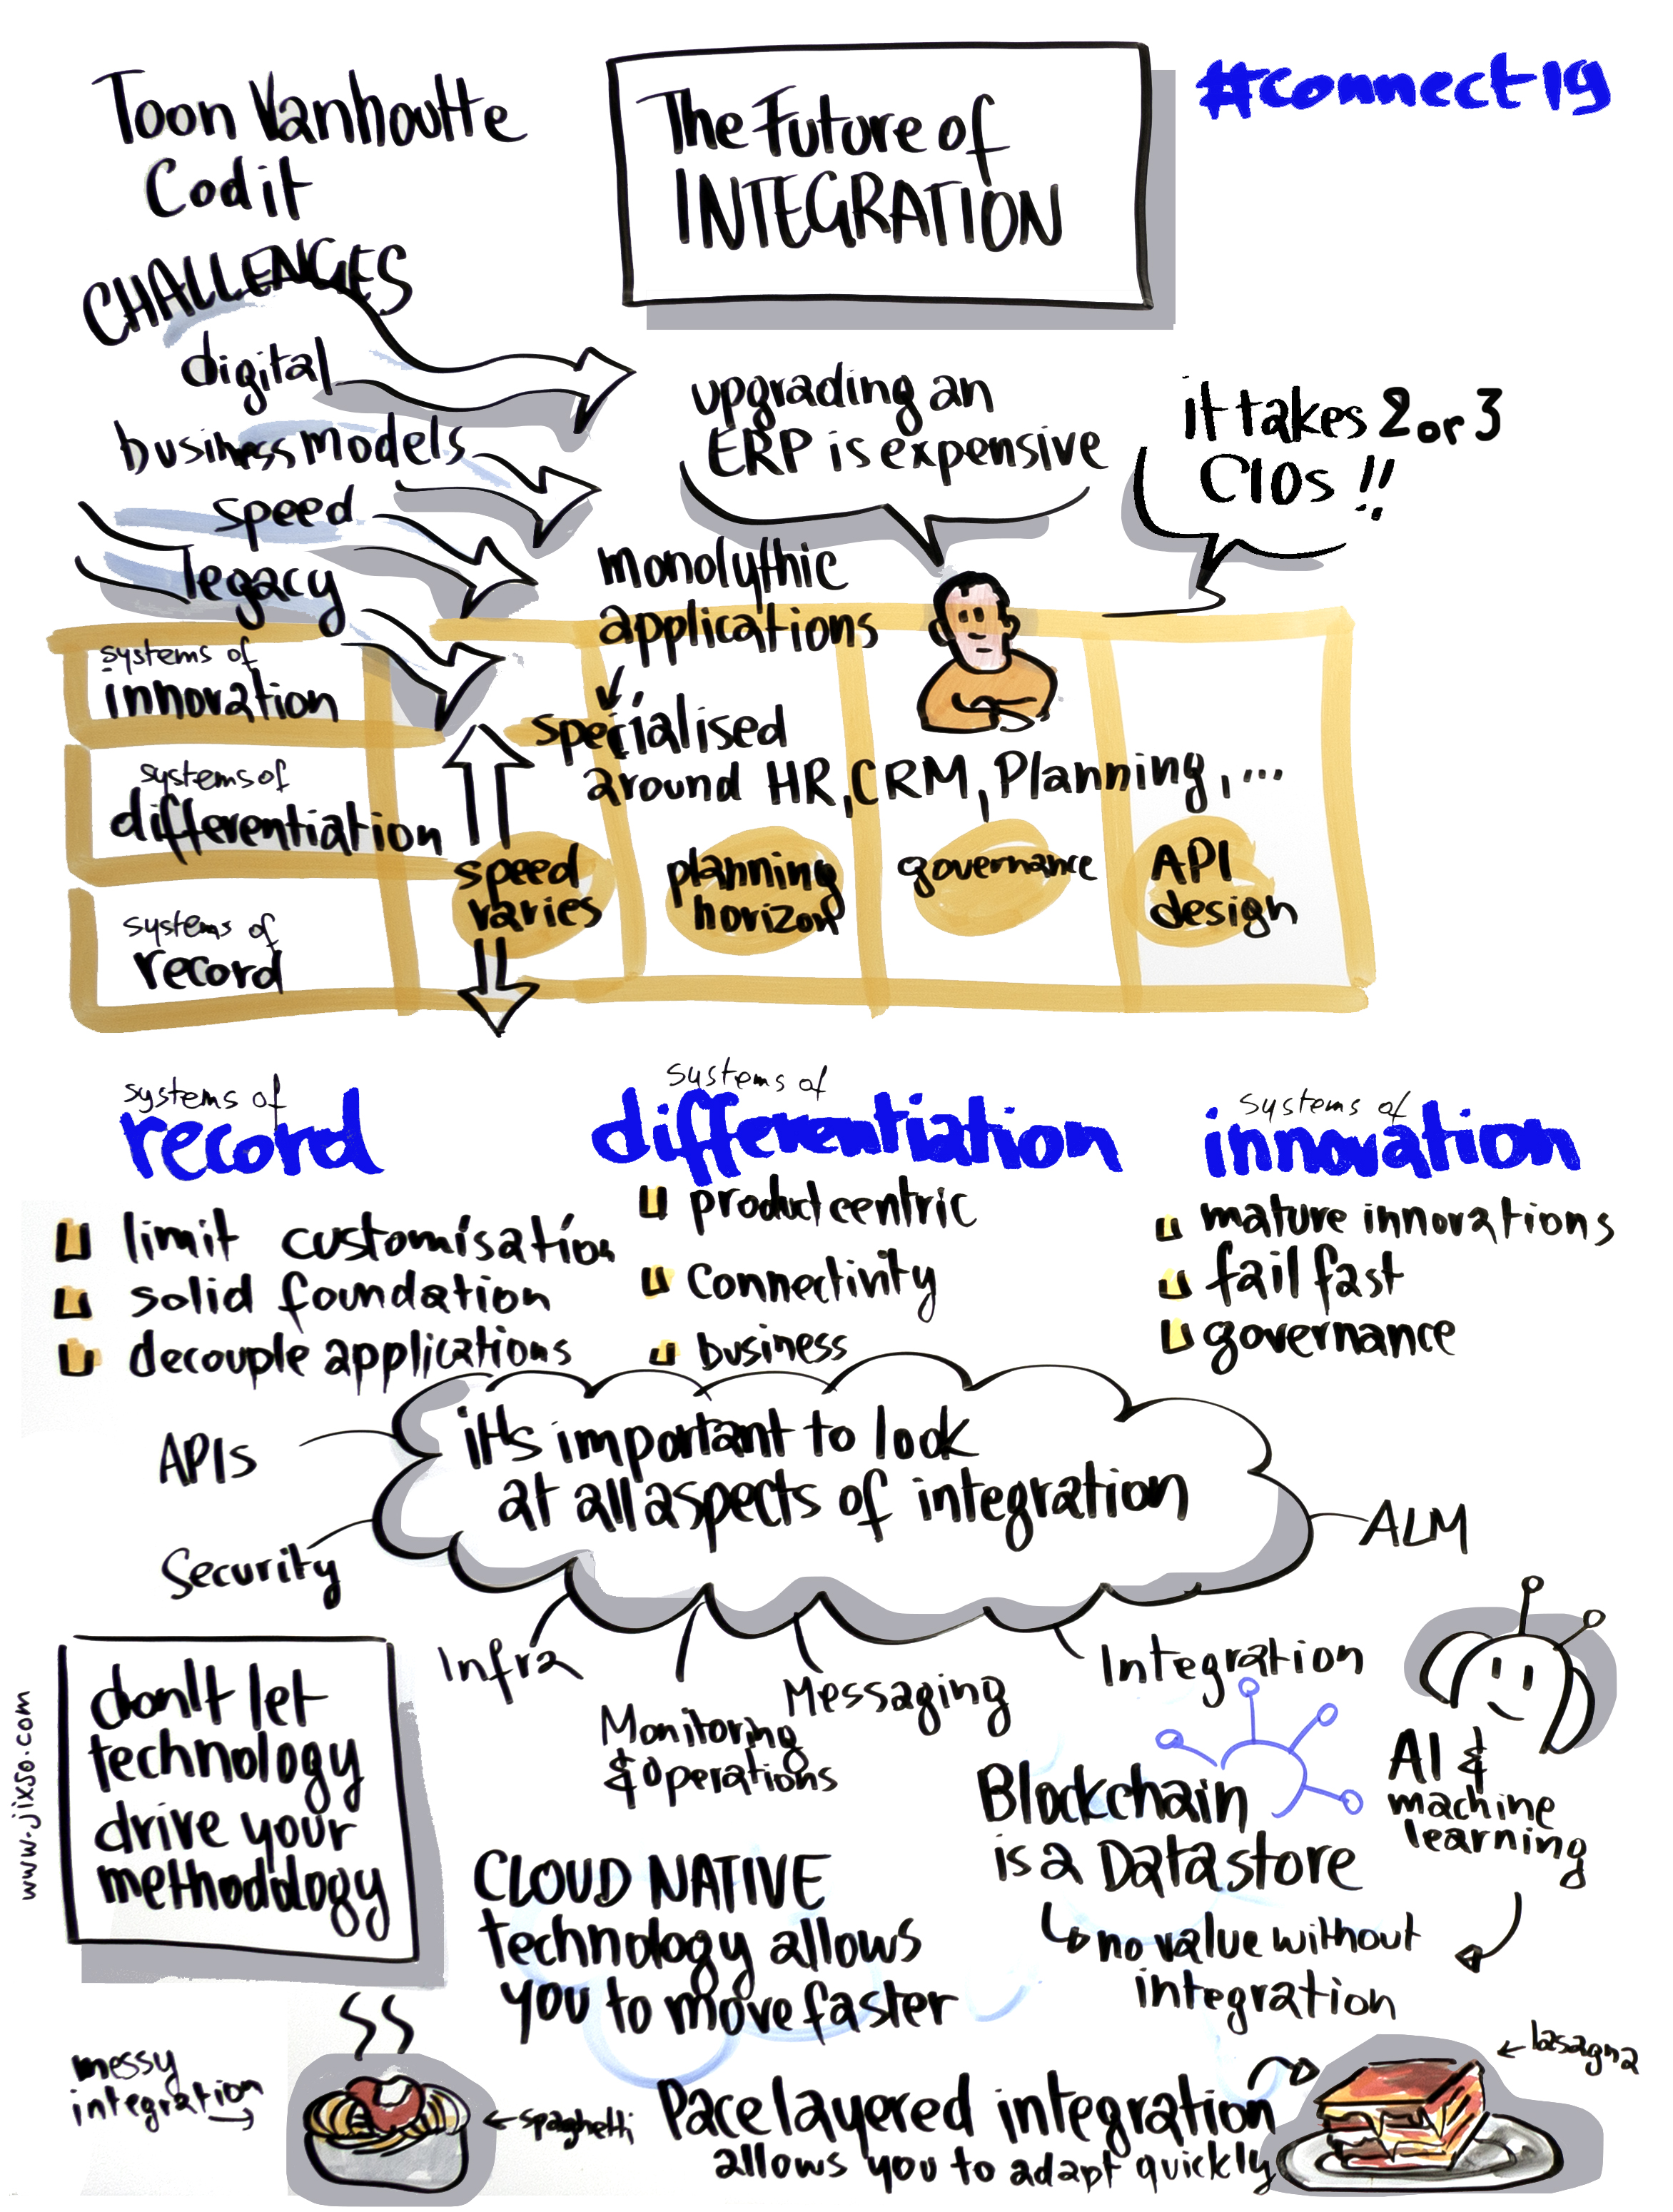 Toon Vanhoutte
Codit
The Future of
INTEGRATION
#connect19
CHALLENGES
digital
business models
speed
legacy
upgrading an
ERP is expensive
it takes 2 or 3
CIOs !!
monolythic
applications
specialised
around HR, CRM, Planning, ...
systems of
innovation
systems of
differentiation
systems of
record
speed
varies
planning
horizon
governance
API
design
systems of
record
limit customisation
solid foundation
decouple applications
systems of
differentiation
product centric
connectivity
business
systems of
innovation
mature innovations
fail fast
governance
it's important to look
at all aspects of integration
APIs
Security
Infra
Monitoring
& Operations
Messaging
Integration
ALM
don't let
technology
drive your
methodology
www.jixso.com
CLOUD NATIVE
technology allows
you to move faster
Blockchain
is a Datastore
no value without
integration
AI &
machine
learning
messy
integration
spaghetti
Pace layered integration
allows you to adapt quickly
lasagna